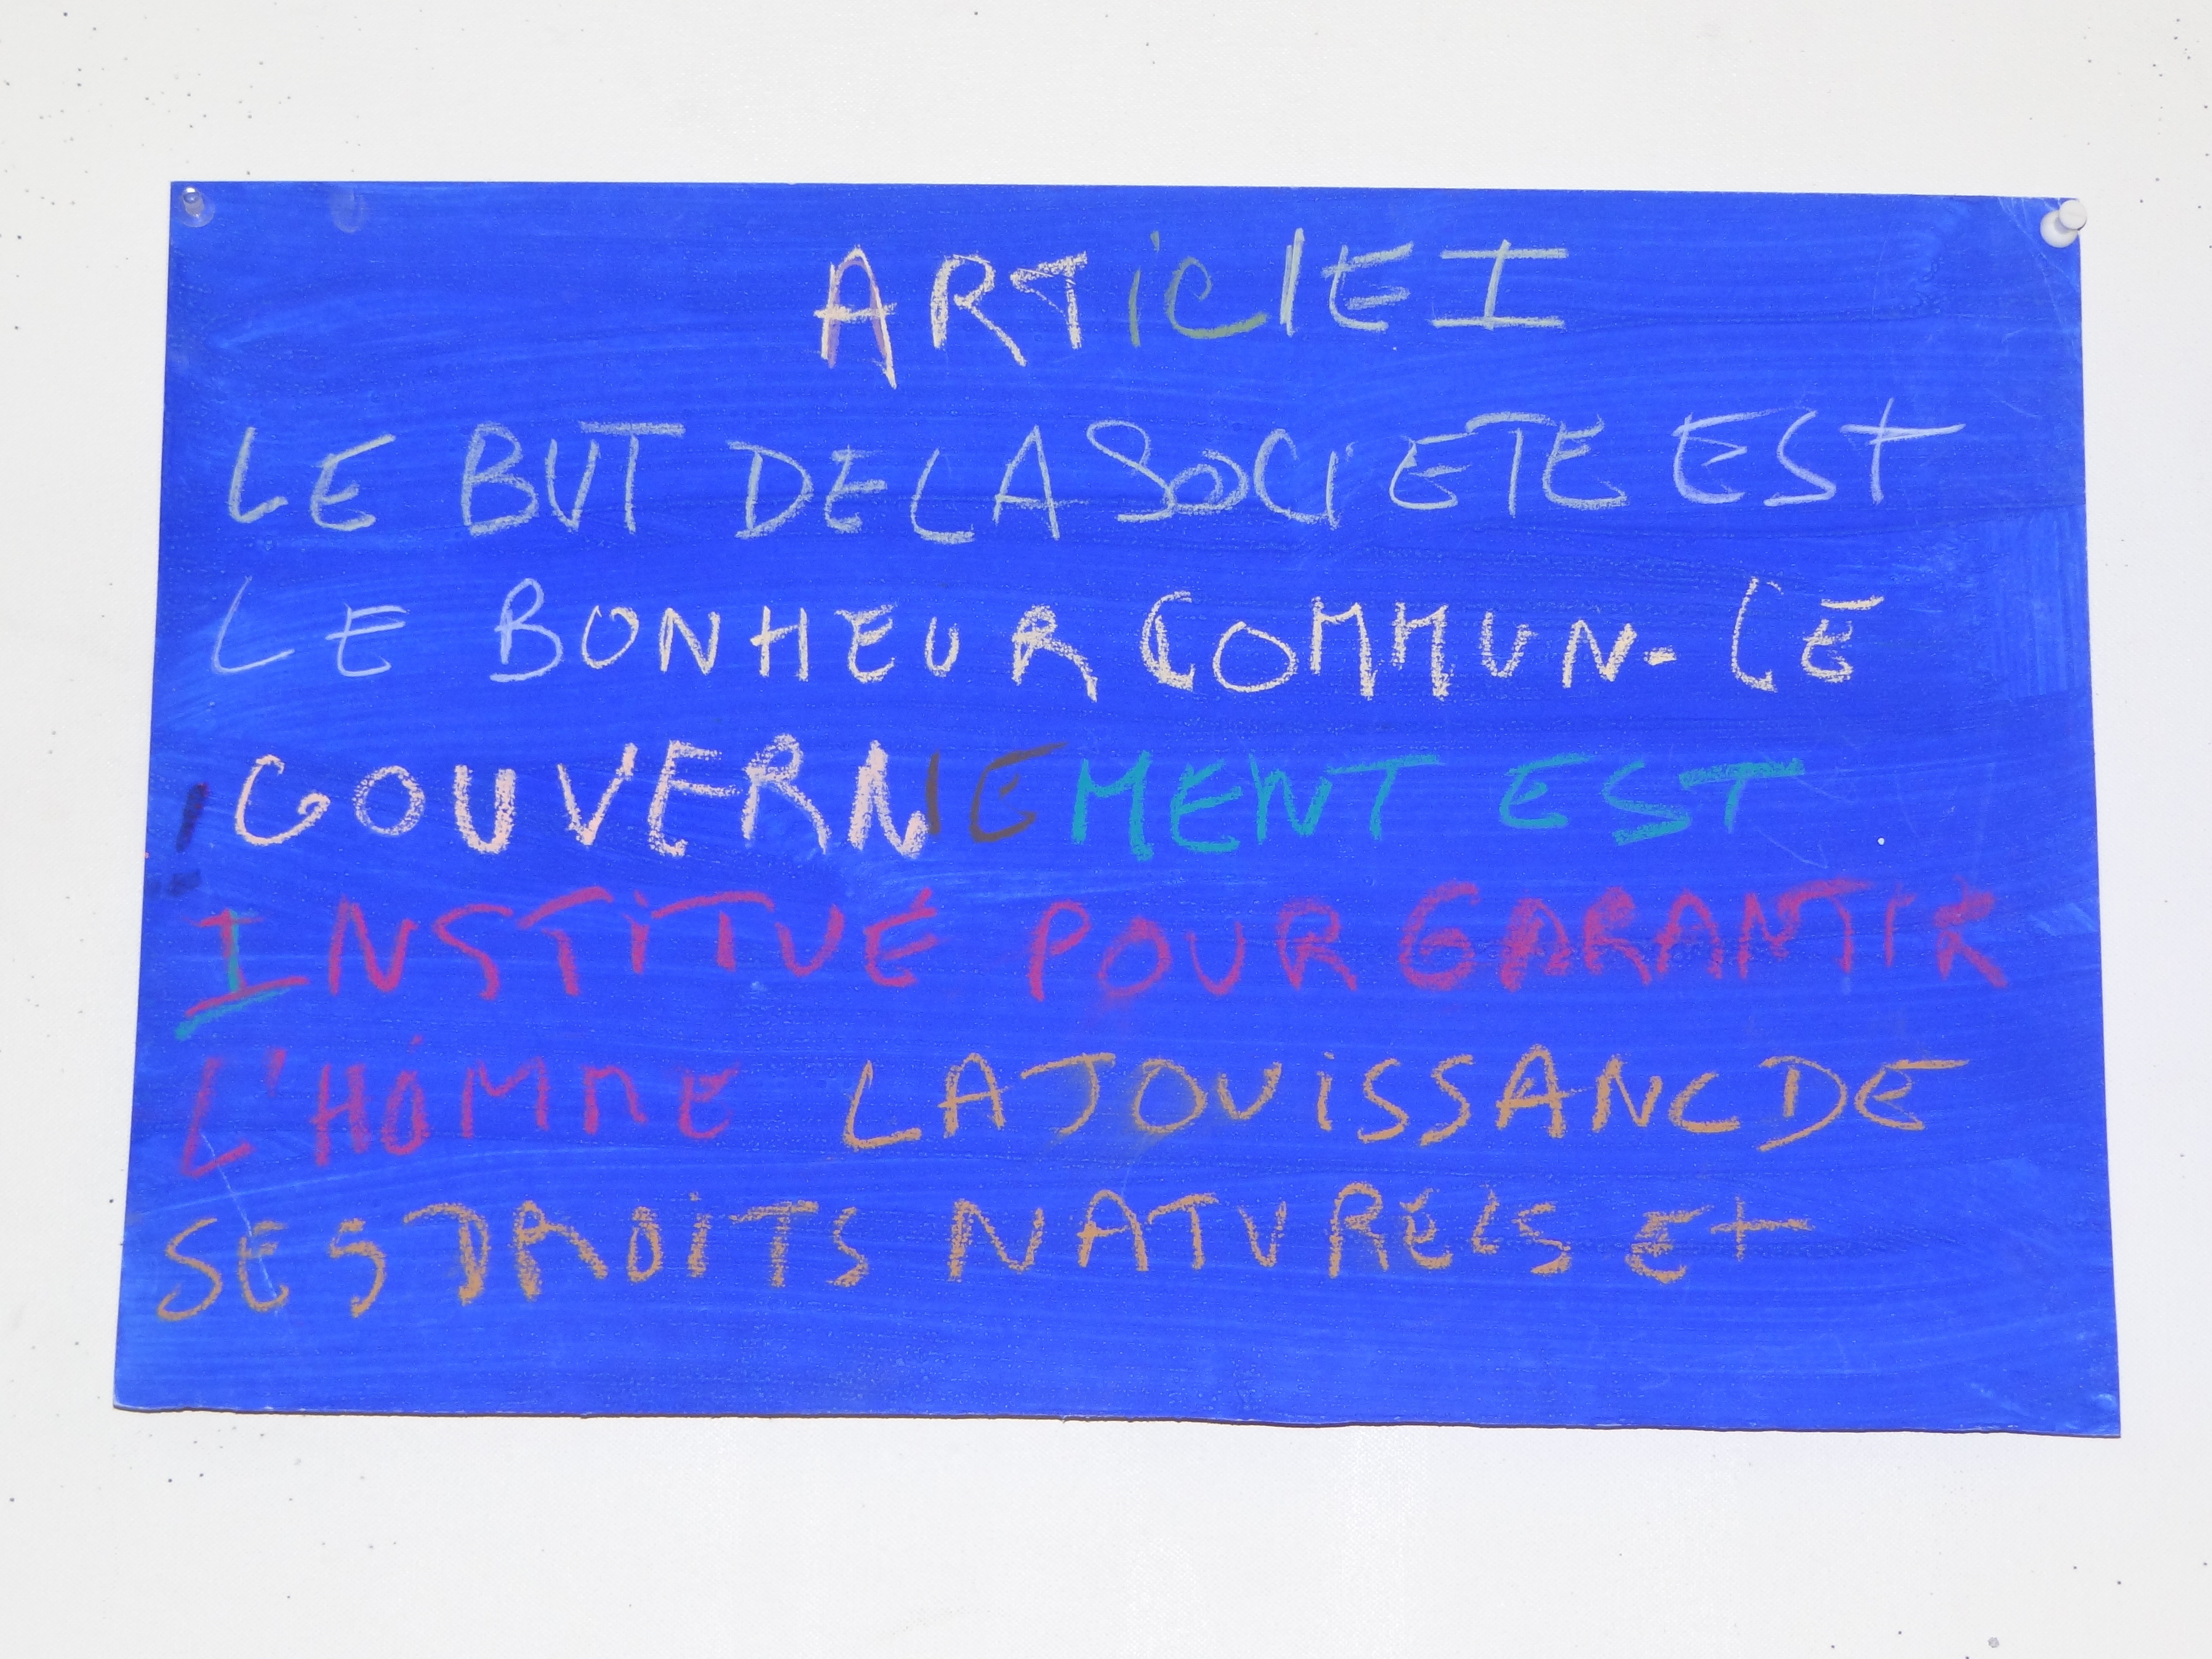 ARTiClE I
LE BUT DE LA SOCiETE EST
LE BONHEUR COMMUN. LE
GOUVERNEMENT EST
INSTiTUÉ POUR GARANTIR
L'HOMME LA JOUiSSANC DE
SES DROiTS NATURELS ET